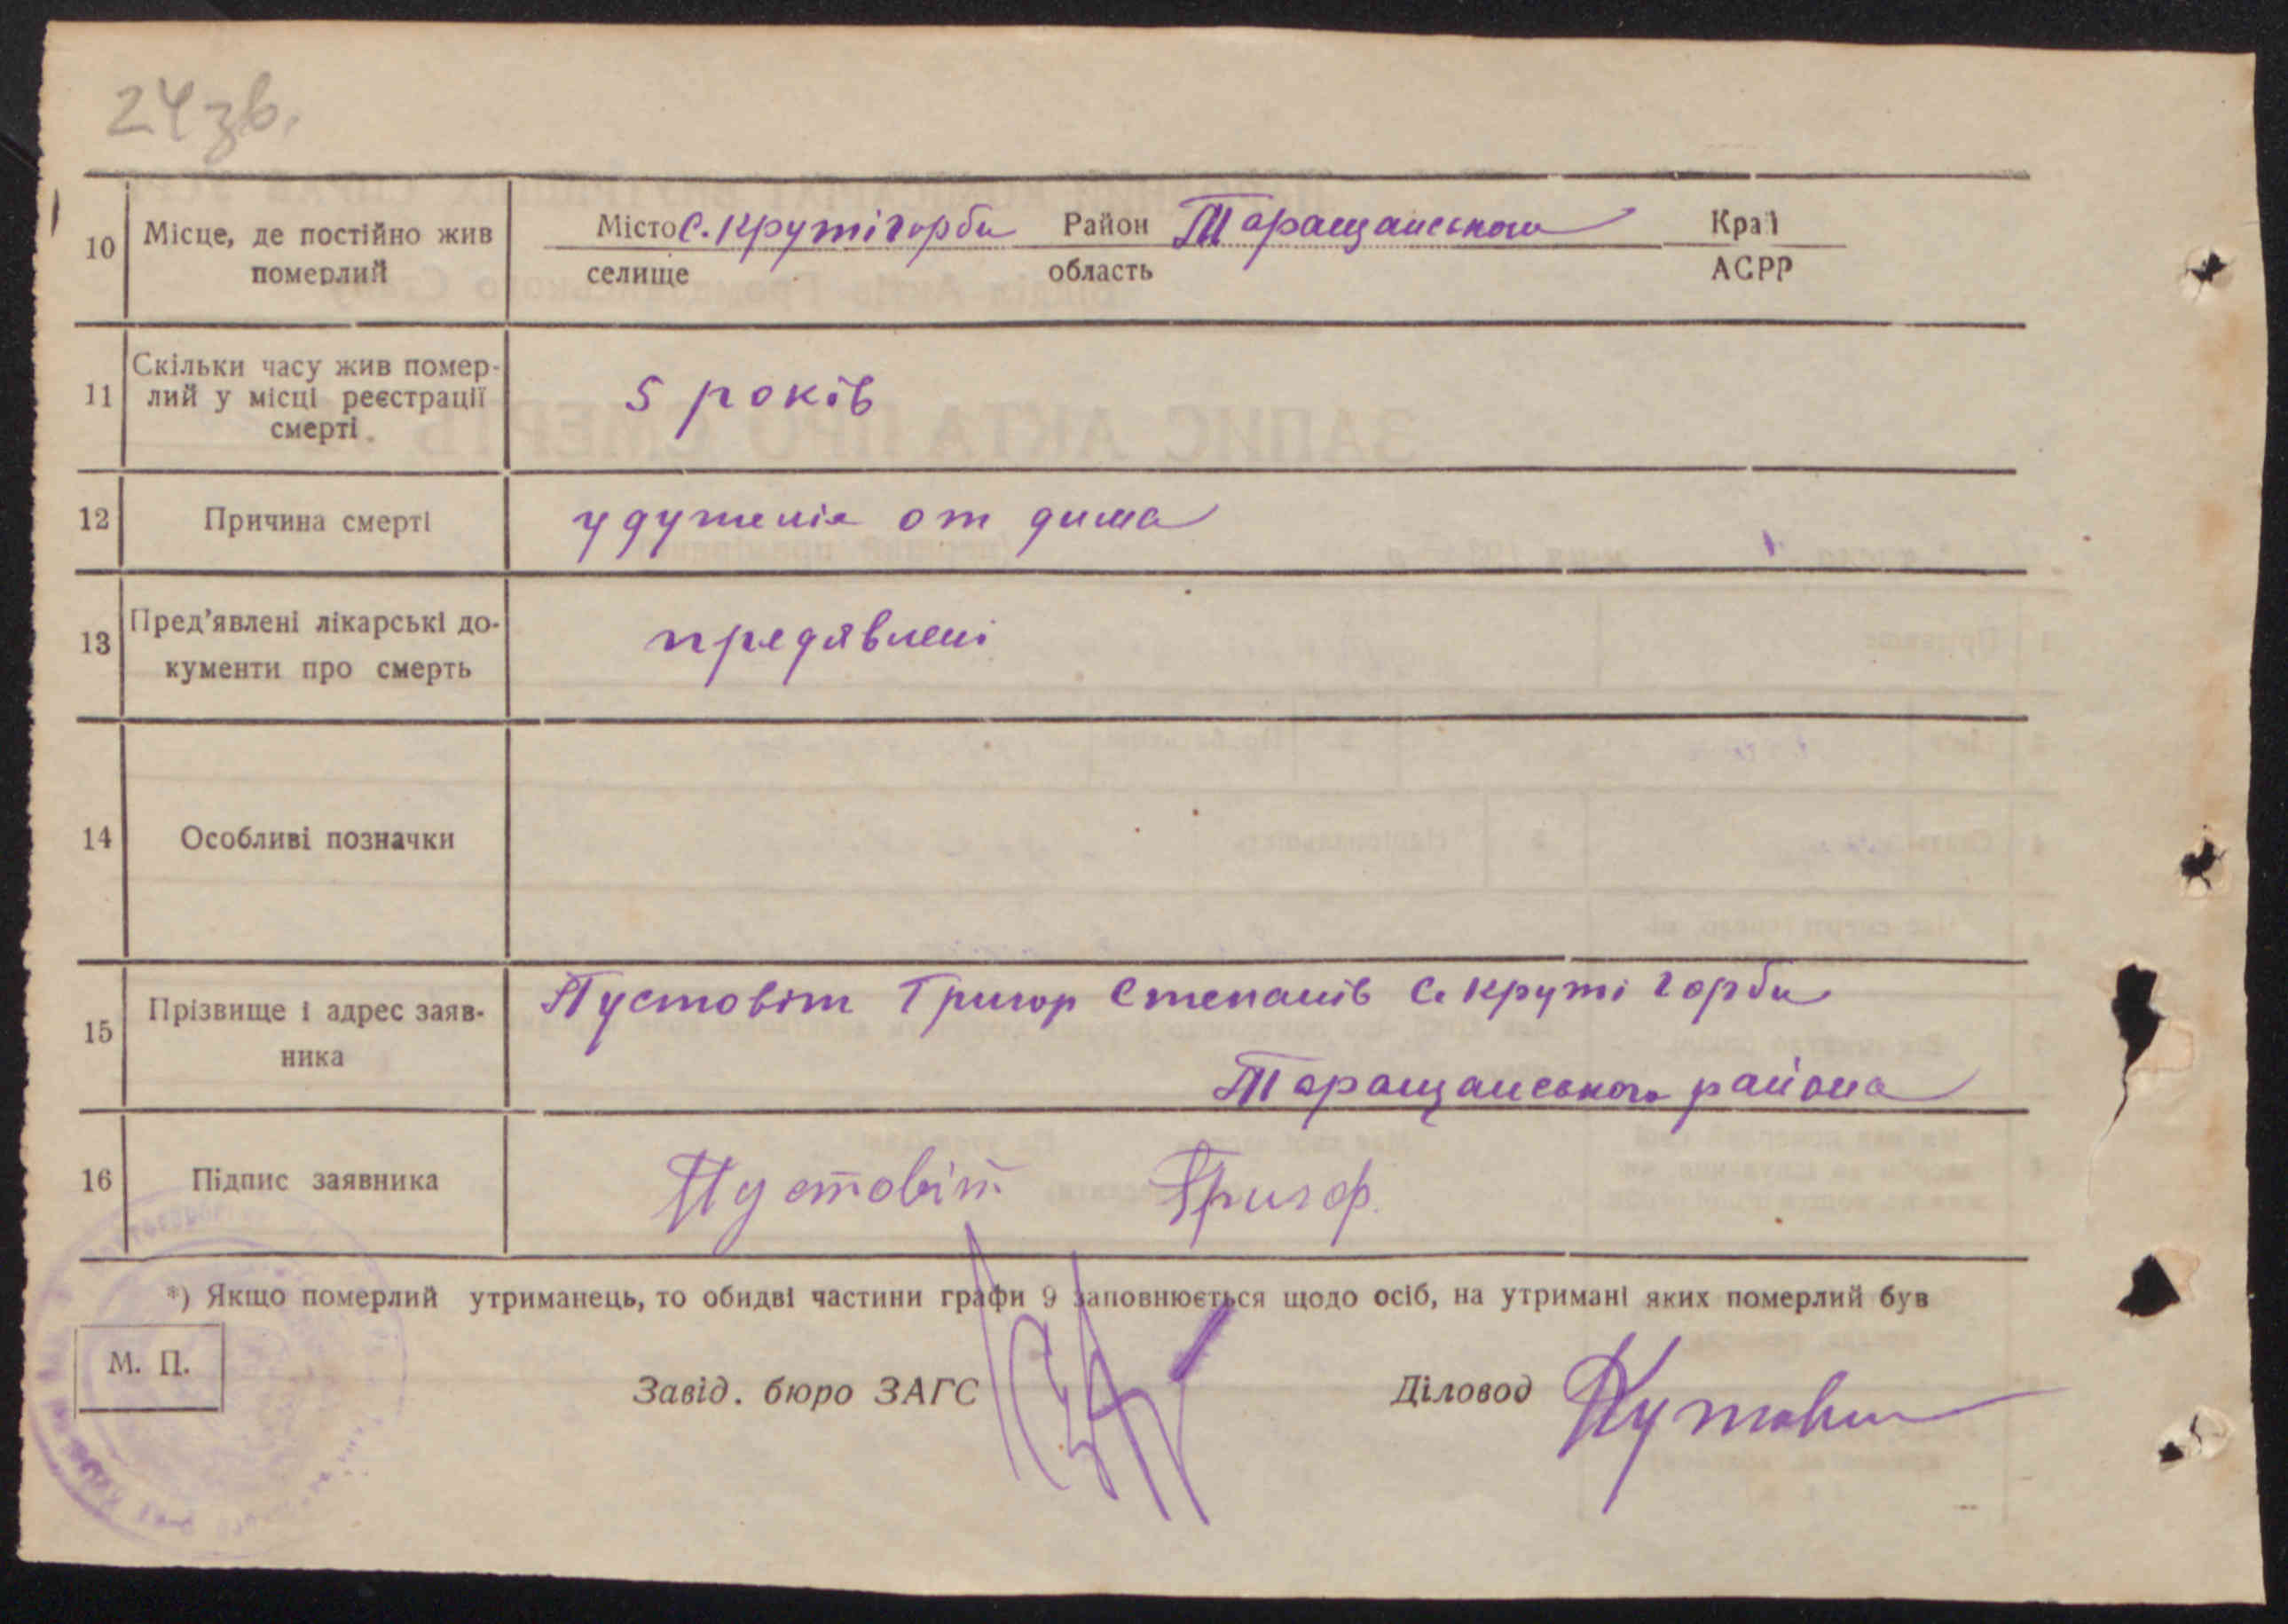 24зв.
10 Місце, де постійно жив померлий
Місто с. Крутігорби Район Таращанського Край
селище область АСРР
11 Скільки часу жив помер-
лий у місці реєстрації
смерті.
5 років
12 Причина смерті удушенія от дима
13 Пред'явлені лікарські до-
кументи про смерть
предявлені
14 Особливі позначки
15 Прізвище і адрес заяв-
ника
Пустовіт Григор Степанів с. Круті горби
Таращанського района
16 Підпис заявника Пустовіт Григор.
*) Якщо померлий утриманець, то обидві частини графи 9 заповнюється щодо осіб, на утримані яких померлий був
М. П.
Завід. бюро ЗАГС Діловод